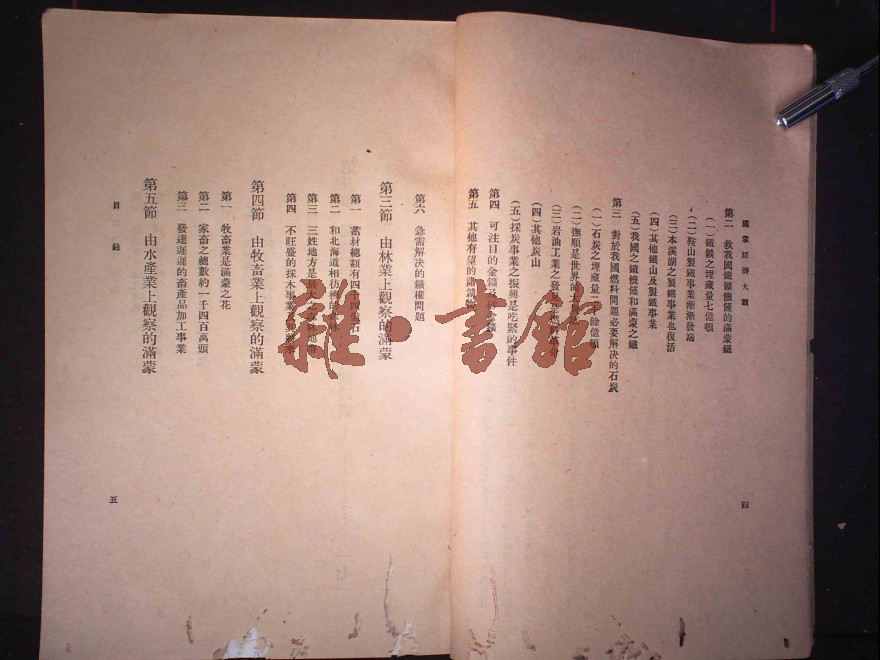 滿蒙經濟大觀
第二 救我國鐵鑛饑饉的滿蒙鐵
(一)鐵鑛之埋藏量七億噸
(二)鞍山製鐵事業漸漸發端
(三)本溪湖之製鐵事業也復活
(四)其他鐵山及製鐵事業
(五)我國之鐵饑饉和滿蒙之鐵
第三 對於我國燃料問題必要解決的石炭
(一)石炭之埋藏量二 餘億噸
(二)撫順是世界的大
(三)岩油工業之發
(四)其他炭山
(五)採炭事業之振興是吃緊的事件
第四 可注目的金鑛及
第五 其他有望的諸鑛
四
第六 急需解决的鑛權問題
第三節 由林業上觀察的滿蒙
第一 蓄材總額有四十四億石
第二 和北海道相彷彿的
第三 三姓地方是最大
第四 不旺盛的採木事業
第四節 由牧畜業上觀察的滿蒙
第一 牧畜業是滿蒙之花
第二 家畜之總數約一千四百萬頭
第三 發達遲遲的畜產品加工事業
第五節 由水產業上觀察的滿蒙
目錄
五
雜·書館